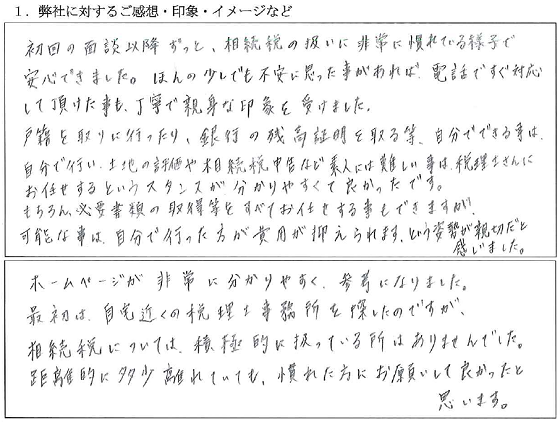 1. 弊社に対するご感想・印象・イメージなど
初回の面談以降ずっと、相続税の扱いに非常に慣れている様子で
安心できました。ほんの少しでも不安に思った事があれば、電話ですぐ対応
して頂けた事も、丁寧で親身な印象を受けました。
戸籍を取りに行ったり、銀行の残高証明を取る等、自分でできる事は、
自分で行い、土地の評価や相続税申告など素人には難しい事は、税理士さんに
お任せするというスタンスが分かりやすくて良かったです。
もちろん、必要書類の取得等をすべてお任せする事もできますが、
可能な事は、自分で行った方が費用が抑えられます、という姿勢が親切だと
感じました。
ホームページが非常に分かりやすく、参考になりました。
最初は、自宅近くの税理士事務所を探したのですが、
相続税については、積極的に扱っている所はありませんでした。
距離的に多少離れていても、慣れた方にお願いして良かったと
思います。